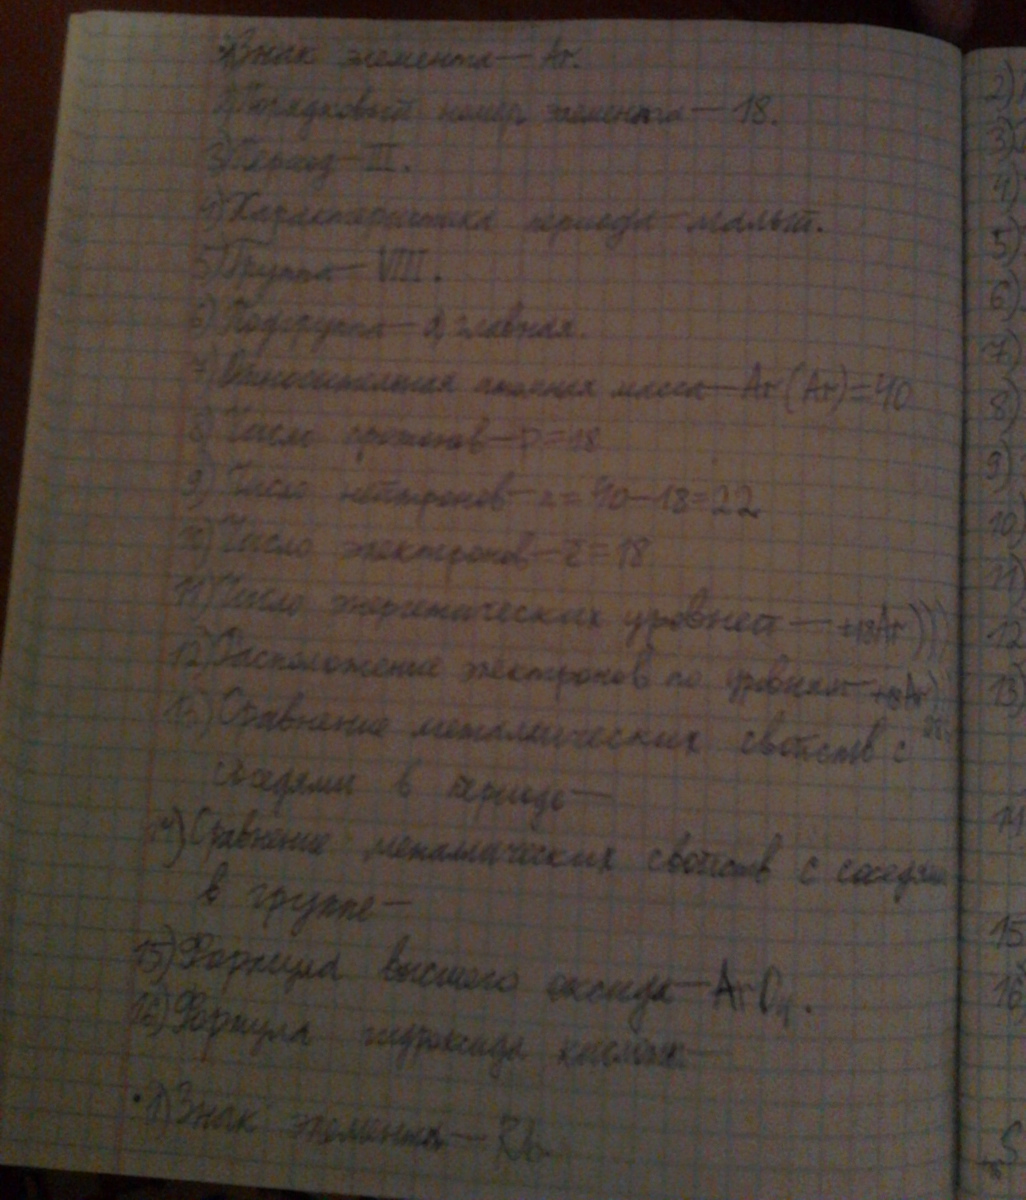 1) Знак элемента — Ar.
2) Порядковый номер элемента — 18.
3) Период — III.
4) Характеристика периода — малый.
5) Группа — VIII.
6) Подгруппа — а, главная.
7) Относительная атомная масса — Ar (Ar) = 40
8) Число протонов — p = 18
9) Число нейтронов — n = 40 — 18 = 22
10) Число электронов — = 18
11) Число энергетических уровней — +18Ar )))
12) Расположение электронов по уровням — +18Ar ))
13) Сравнение металлических свойств с
соседями в периоде —
14) Сравнение металлических свойств с соседями
в группе —
15) Формула высшего оксида — ArO4.
16) Формула гидроксида
1) Знак элемента — Rb
2)
3)
4)
5)
6)
7)
8)
9)
10)
11)
12
13)
14
15
16